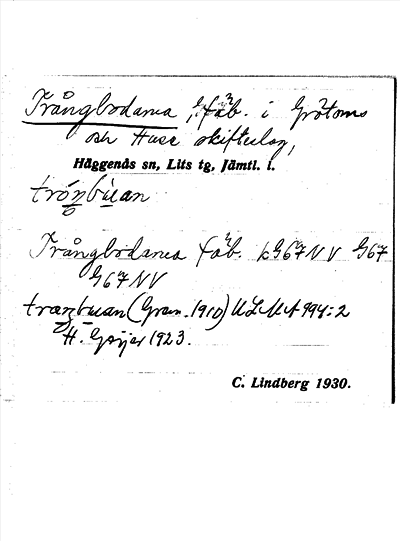 Trångbodarna, fäb. i Grötoms
och Huse skifteslag,
Häggenås sn, Lits tg, Jämtl. l.
Trångbodarna fäb. kG67NV G67
G67NV
(Gram. 1910) ULMA 994:2
H. Geijer 1923.
C. Lindberg 1930.